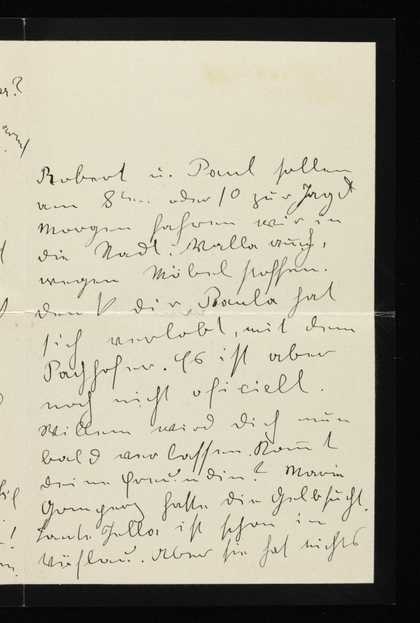 er?
Robert u. Paul sollen
am 8ten oder 10 zur Jagd
Morgen fahren wir in
die Stadt. Walla auch,
wegen Möbelstoffen.
denk dir, Paula hat
sich verlobt, mit dem
Pachhofer. Es ist aber
noch nicht oficiell.
Willem wird dich nun
bald verlassen. Kommt
deine Freundin? Marie
Gomperz hatte die Gelbsucht.
Tante Jella ist schon in
Vöslau. Aber sie hat nichts